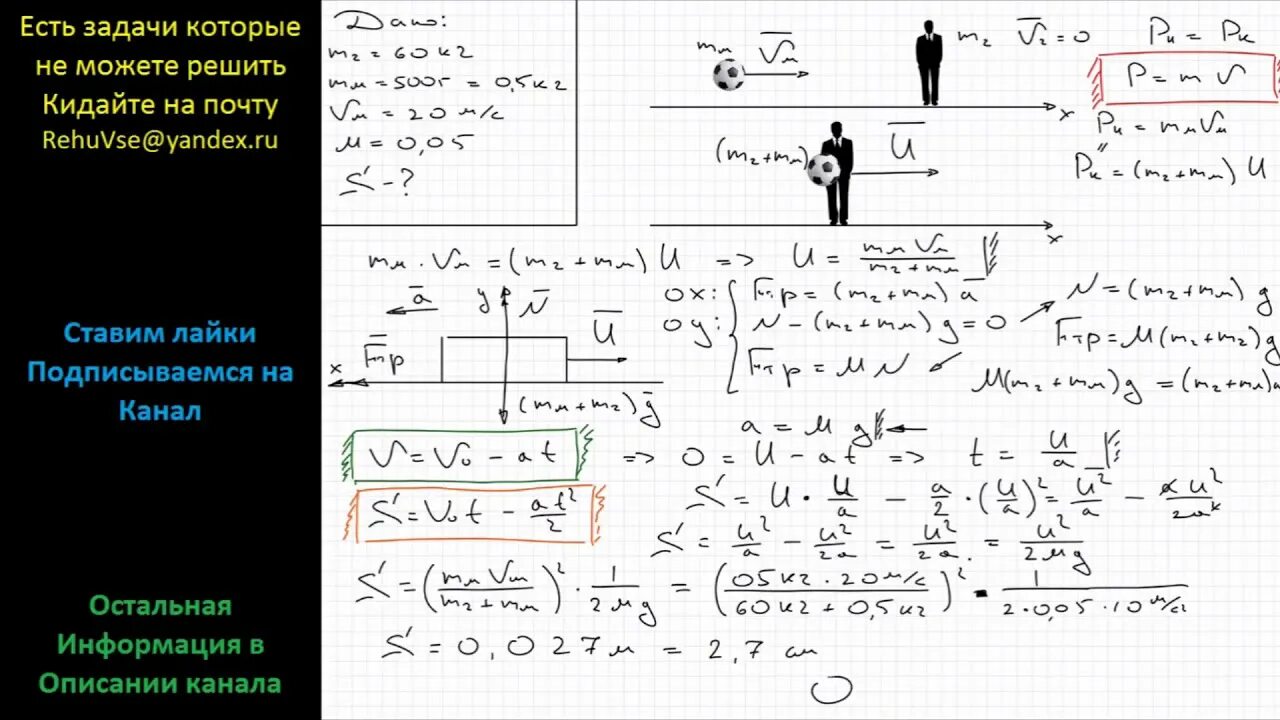 Есть задачи которые
не можете решить
Кидайте на почту
RehuVse@yandex.ru
Ставим лайки
Подписываемся на
Канал
Остальная
Информация в
Описании канала
Дано:
m₂ = 60 кг
mм = 500г = 0,5кг
Vм = 20 м/с
μ = 0,05
S - ?
mм V̅м
m₂ V̅₂ = 0
x
(m₂+mм) U̅
x
Pн = Pк
P = m V
Pн = mмVм
"
Pк = (m₂+mм) U
mм · Vм = (m₂+mм) U => U = mм Vм / (m₂+mм)
a̅ y N̅ U̅
F̅тр x
(mм+m₂) g̅
ox: Fтр = (m₂+mм) a
oy: N - (m₂+mм) g = 0
Fтр = μ N
N = (m₂+mм) g
Fтр = μ(m₂+m₂)g
μ(m₂+mм)g = (m₂+mм)a
a = μ g
V = V₀ - at => 0 = U - at => t = U/a
S = V₀t - at²/2
S = U · U/a - a/2 · (U/a)² = U²/a - aU²/2a²
S = U²/a - U²/2a = U²/2a = U²/2μg
S = (mм Vм / (m₂+mм))² · 1/2μg = (05кг · 20м/с / 60кг + 0,5кг)² · 1 / 2·0,05·10м/с²
S = 0,027м = 2,7 см